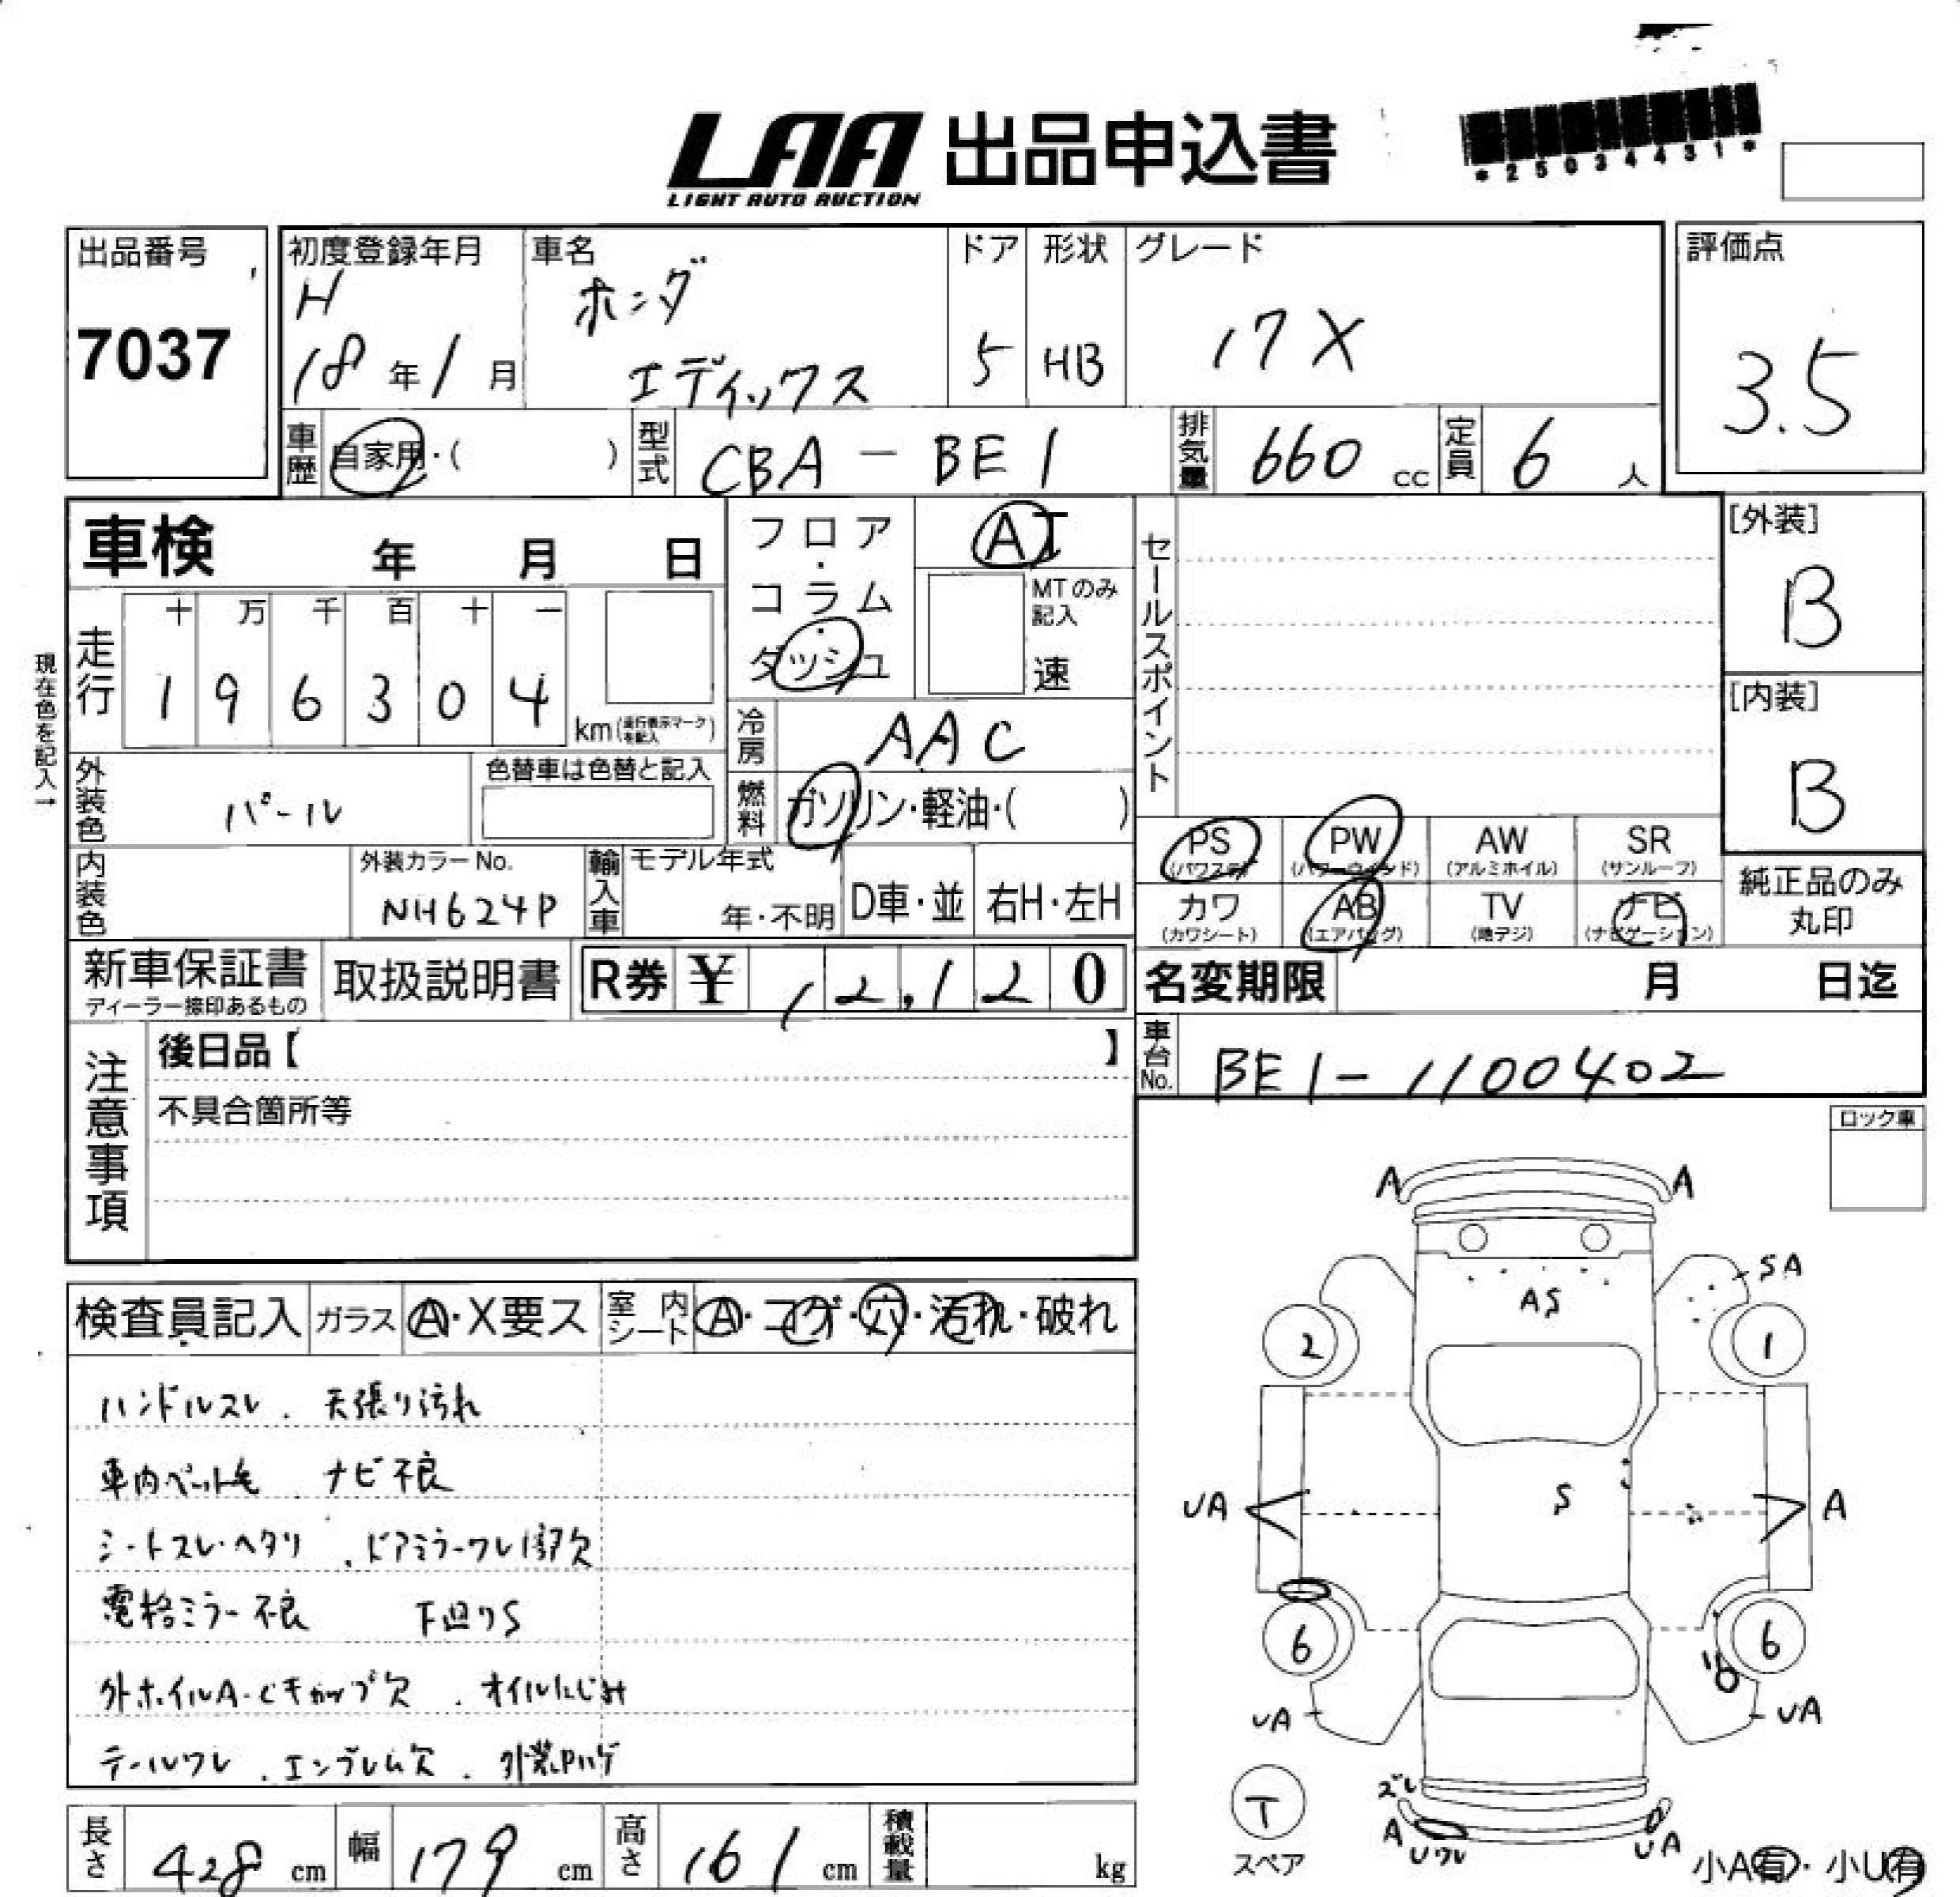 LAA 出品申込書
LIGHT AUTO AUCTION
*25034431*
出品番号
7037
初度登録年月
H
18年1月
車名
ホンダ
エディックス
ドア
5
形状
HB
グレード
17X
評価点
3.5
車歴
自家用・( )
型式
CBA-BE1
排気量
660 cc
定員
6人
車検 年 月 日
フロア・コラム・ダッシュ
AT
MTのみ記入
速
セールスポイント
[外装]
B
[内装]
B
現在色を記入→
走行
十 万 千 百 十 一
1 9 6 3 0 4
km(走行表示マークを記入)
冷房
AAC
外装色
パール
色替車は色替と記入
燃料
ガソリン・軽油・( )
PS
(パワステ)
PW
(パワーウインド)
AW
(アルミホイル)
SR
(サンルーフ)
カワ
(カワシート)
AB
(エアバッグ)
TV
(地デジ)
ナビ
(ナビゲーション)
純正品のみ
丸印
内装色
外装カラーNo.
NH624P
輸入車
モデル年式
年・不明
D車・並
右H・左H
新車保証書
ディーラー捺印あるもの
取扱説明書
R券 ¥ 12,120
名変期限 月 日迄
車台No.
BE1-1100402
注意事項
後日品【 】
不具合箇所等
ロック車
検査員記入
ガラス
A・X要ス
室内シート
A・コゲ・穴・汚れ・破れ
ハンドルスレ . 天張り汚れ
車内ペット毛 . ナビ不良
シートスレ・ヘタリ . ドアミラーワレ
電格ミラー不良 下廻りS
外ホイルA・Cキャップ欠 . オイルにじみ
テールワレ . エンブレム欠 . 外装Pハゲ
A A
SA
AS
2 1
S
UA A
6 6
UA UA
ズレ
T
スペア
A
Uワレ
UA
小A有・小U有
長さ
428 cm
幅
179 cm
高さ
161 cm
積載量
kg